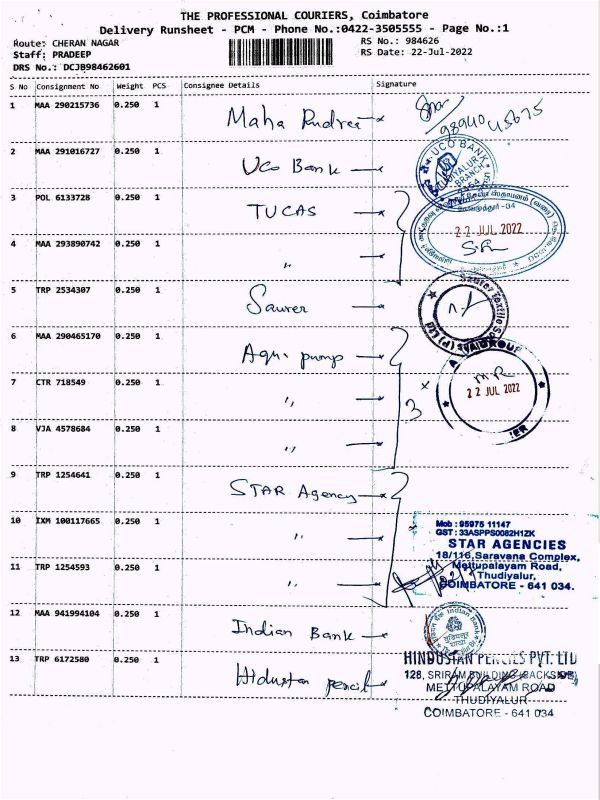 THE PROFESSIONAL COURIERS, Coimbatore
Delivery Runsheet - PCM - Phone No.:0422-3505555 - Page No.:1
Route: CHERAN NAGAR RS No.: 984626
Staff: PRADEEP RS Date: 22-Jul-2022
DRS No.: DCJB98462601
S No Consignment No Weight PCS Consignee Details Signature
1 MAA 290215736 0.250 1 Maha Rudree
2 MAA 291016727 0.250 1 Uco Bank
UCO BANK
BRANCH
3 POL 6133728 0.250 1 TUCAS
22 JUL 2022
4 MAA 293890742 0.250 1 "
5 TRP 2534307 0.250 1 Saurer
6 MAA 290465170 0.250 1 Aqu. pump
22 JUL 2022
7 CTR 718549 0.250 1 " 3
8 VJA 4578684 0.250 1 "
9 TRP 1254641 0.250 1 STAR Agency
10 IXM 100117665 0.250 1 "
Mob : 95975 11147
GST : 33ASPPS0082H1ZK
STAR AGENCIES
18/116,Saravana Complex,
Mettupalayam Road,
Thudiyalur,
COIMBATORE - 641 034.
11 TRP 1254593 0.250 1 "
12 MAA 941994104 0.250 1 Indian Bank
Indian Bank
13 TRP 6172580 0.250 1 Hidustan pencil
HINDUSTAN PENCILS PVT. LTD
128, SRIRAM BUILDING (BACKSIDE)
METTUPALAYAM ROAD
THUDIYALUR
COIMBATORE - 641 034